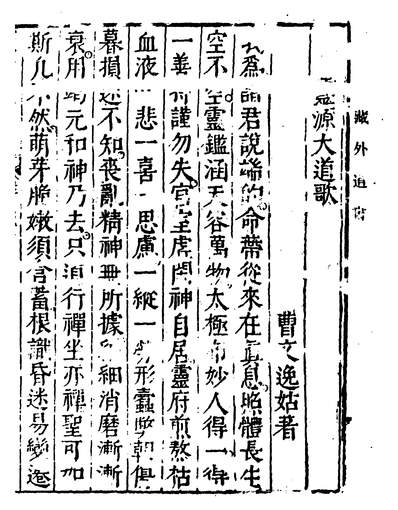 藏外道書
源大道歌
曹文逸姑著
為諸君說端的命蒂從來在真息照體長生
空不空靈鑑涵天容萬物太極布妙人得一得
一善持謹勿失宮室虛閑神自居靈府煎熬枯
血液一悲一喜一思慮一縱一勞形蠹弊朝傷
暮損迷不知喪亂精神無所據細細消磨漸漸
衰用竭元和神乃去只道行禪坐亦禪聖可如
斯凡不然萌芽脆嫩須含蓄根識昏迷易變遷